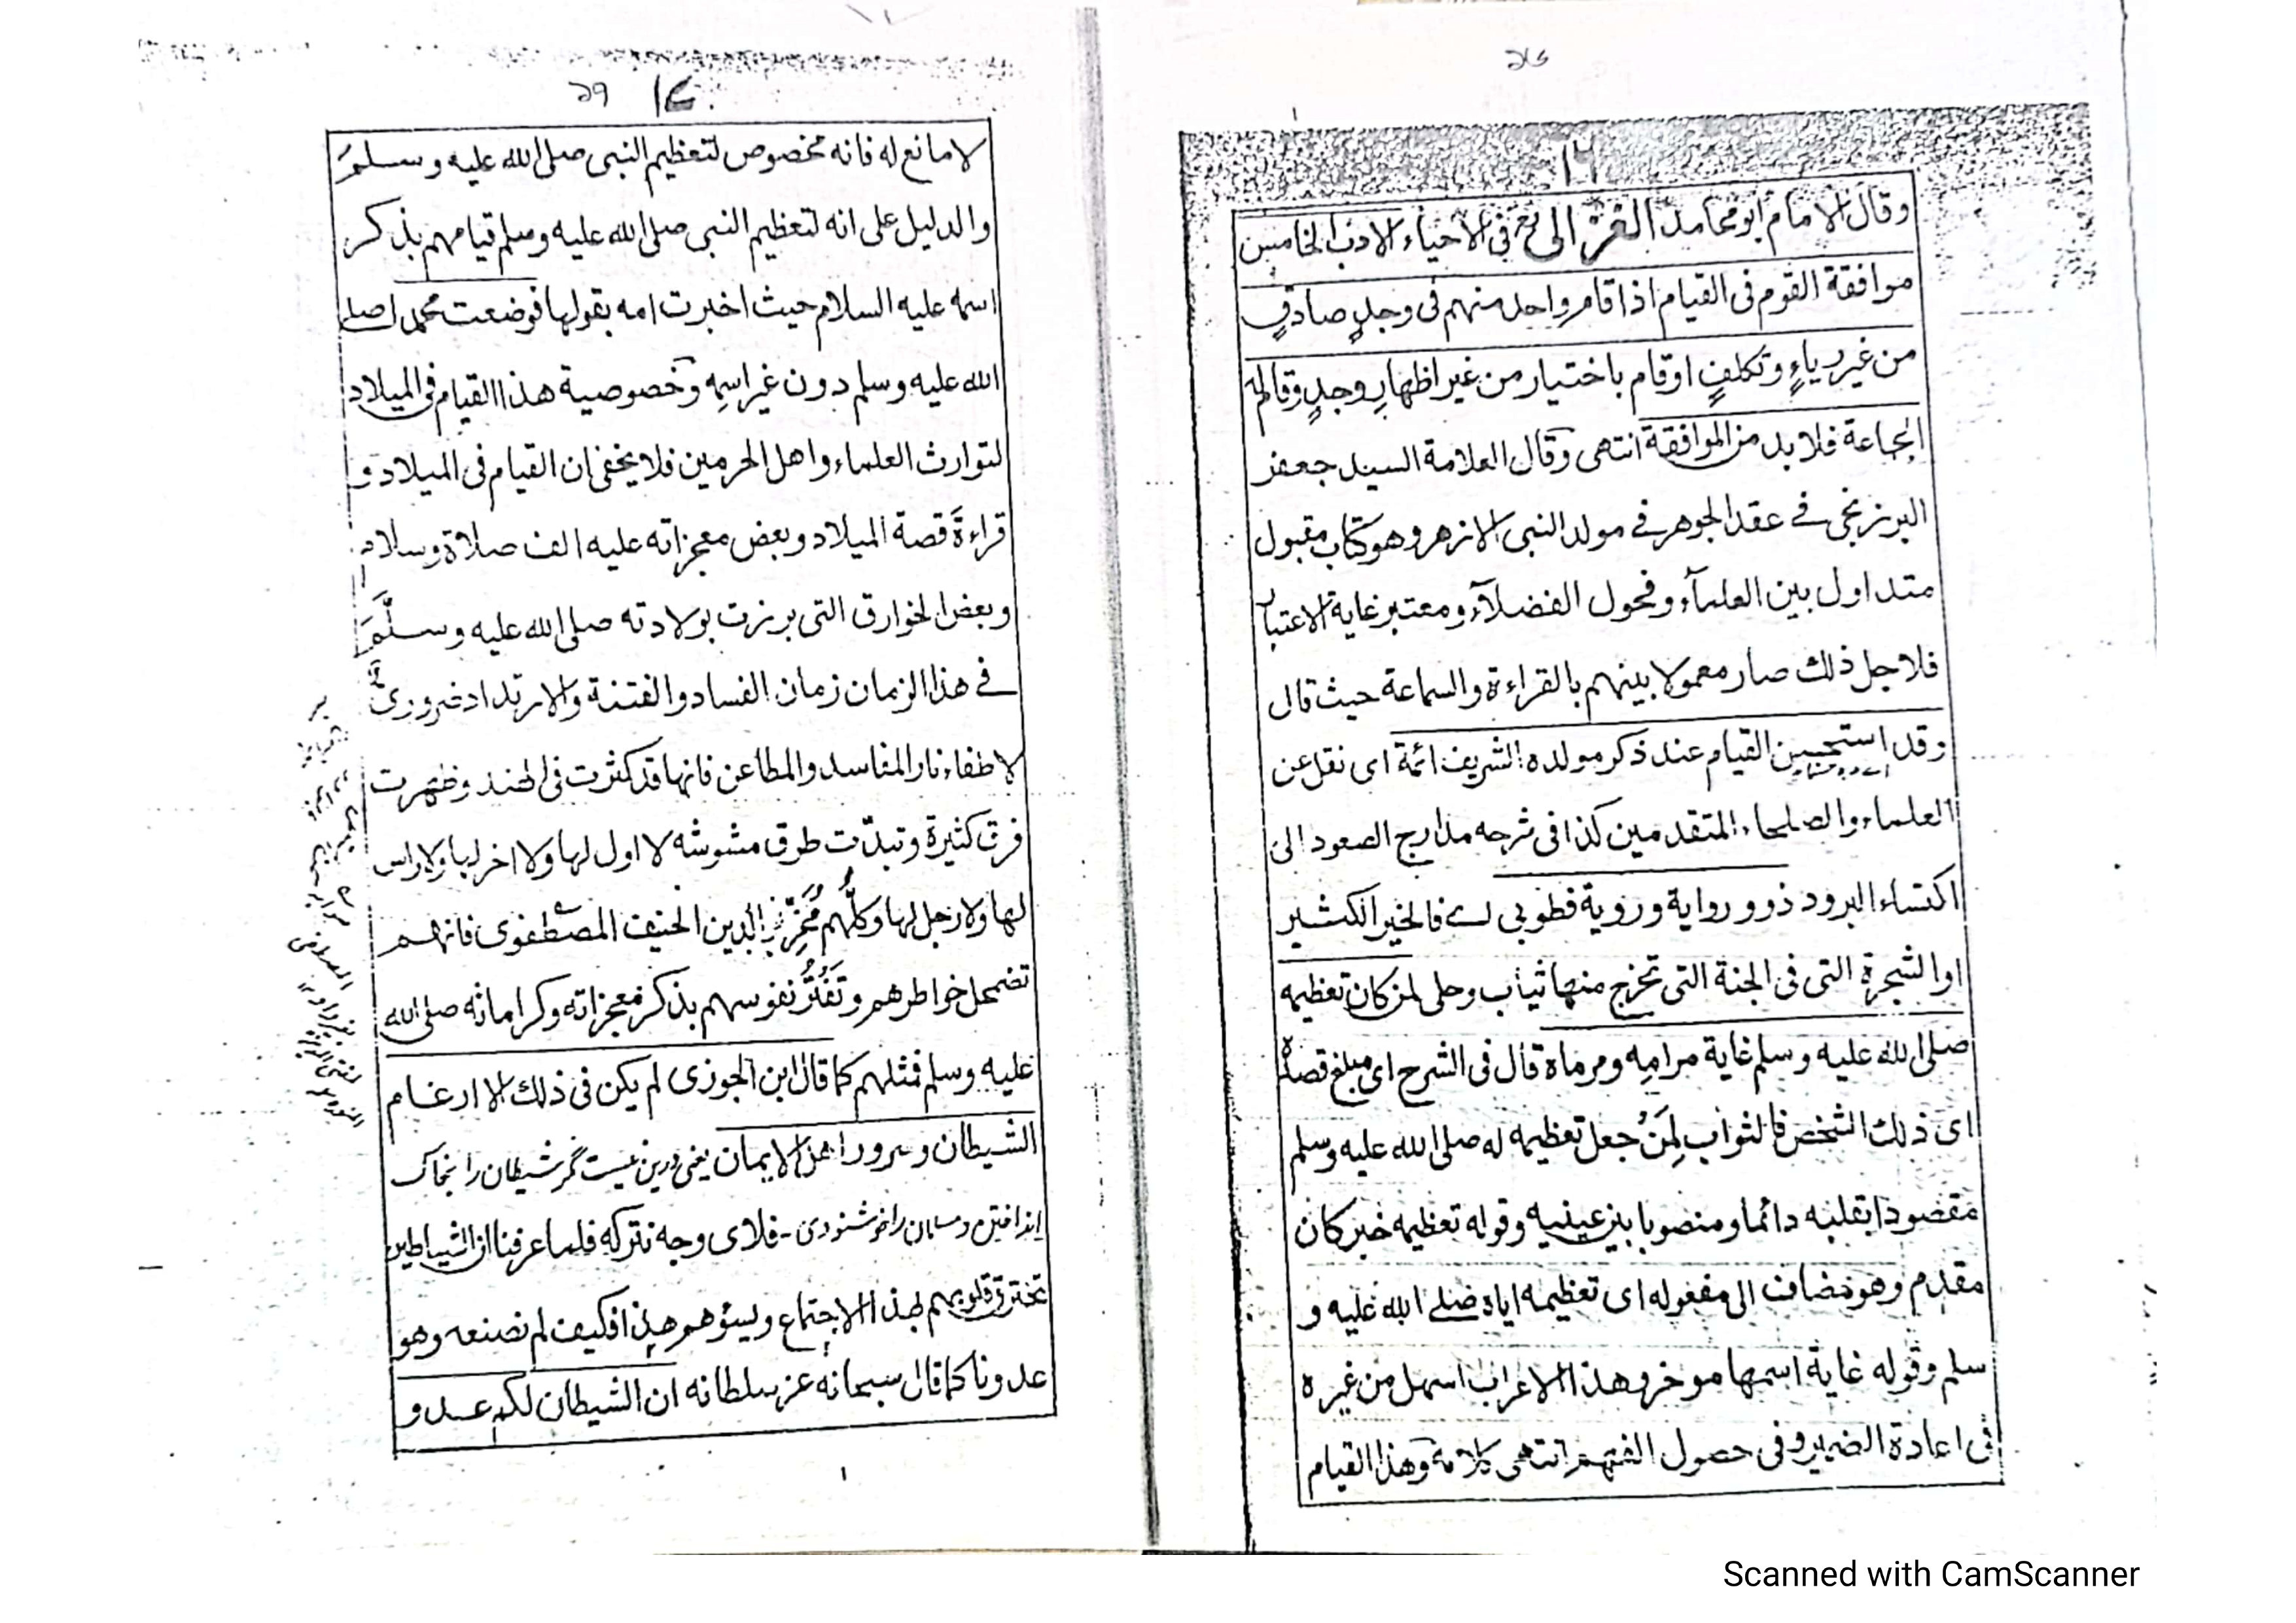 ١٦
وقال الامام ابو محامد الغزالى رح فى الاحياء الادب الخامس
موافقة القوم فى القيام اذا قام واحد منهم فى وجدٍ صادقٍ
من غير رياءٍ وتكلفٍ او قام باختيار من غير اظهارِ وجدٍ وقام له
الجماعة فلا بد من الموافقة انتهى وقال العلامة السيد جعفر
البرزنجى فے عقد الجوهر فے مولد النبى الازهر وهو كتاب مقبول
متداول بين العلمآء وفحول الفضلآء ومعتبر غاية الاعتبار
فلاجل ذلك صار معمولا بينهم بالقراءة والسماعة حيث قال
وقد استحسن القيام عند ذكر مولده الشريف ائمة اى نقل عن
العلماء والصلحاء المتقدمين كذا فى شرحه مدارج الصعود الى
اكتساء البرود ذوو رواية وروية فطوبى اے فالخير الكثير
او الشجرة التى فى الجنة التى تخرج منها ثياب وحلى لمن كان تعظيمه
صلى الله عليه وسلم غاية مرامِه ومرماه قال فى الشرح اى مبلغ قصده
اى ذلك الشخص فالثواب لِمَنْ جعل تعظيمه له صلى الله عليه وسلم
مقصودا بقلبه دائما ومنصوبا بين عينيه وقوله تعظيمه خبر كان
مقدم وهو مضاف الى مفعوله اى تعظيمه اياه صلے الله عليه و
سلم وقوله غاية اسمها موخر وهذا الاعراب اسهل من غيره
فى اعادة الضمير وفى حصول الفهم انتهى كلامه وهذا القيام
١٧
لا مانع له فانه مخصوص لتعظيم النبى صلى الله عليه وسلم
والدليل على انه لتعظيم النبى صلى الله عليه وسلم قيامهم بذكر
اسمه عليه السلام حيث اخبرت امه بقولها فوضعت محمدا صلى
الله عليه وسلم دون غير اسمِه وخصوصية هذا القيام فى الميلاد
لتوارث العلماء واهل الحرمين فلا يخفى ان القيام فى الميلاد و
قراءة قصة الميلاد وبعض معجزاته عليه الف صلاة وسلام
وبعض الخوارق التى برزت بولادته صلى الله عليه وسلَّمَ
فے هذا الزمان زمان الفساد والفتنة والارتداد ضرورىٌّ
لاطفاء نار المفاسد والمطاعن فانها قد كثرت فى الهند وظهرت
فرق كثيرة وتبدّت طرق مشوشه لا اول لها ولا اخر لها ولا راس
لها ولا رجل لها وكلُّهم مُخَرِّبُ الدين الحنيف المصطفوى فانهم
تضمحل خواطرهم وتَفْتُرُ نفوسهم بذكر معجزاته وكراماته صلى الله
عليه وسلم فمثلهم كما قال ابن الجوزى لم يكن فى ذلك الا ارغام
الشيطان وسرور اهل الايمان يعنى درين نيست مگر شيطان را بخاک
انداختن ومسلمان را خوشنودى - فلاى وجه نتركه فلما عرفنا ان الشياطين
تحترق قلوبهم لهذا الاجتماع ويسؤهم هذا فكيف لم نصنعه وهو
عدونا كما قال سبحانه عز سلطانه ان الشيطان لكم عدو و
Scanned with CamScanner